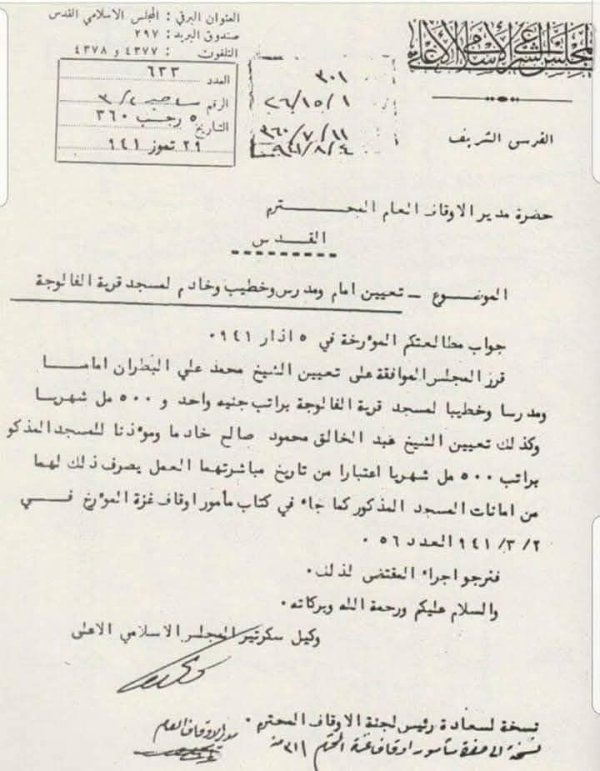 المجلس الشرعي الإسلامي الأعلى
العنوان البرقي : المجلس الاسلامي القدس
صندوق البريد : ٢٩٧
التلفون : ٤٣٧٧ و ٤٣٧٨
العدد ٦٣٣
الرقم
التاريخ ٥ رجب ٣٦٠
٢٩ تموز ٩٤١
٣٠١
٢٦/١٥/١
٣٦٠/٧/١١
٩٤١/٨/٤
القدس الشريف
حضرة مدير الاوقاف العام المحترم
القدس
الموضوع – تعيين امام ومدرس وخطيب وخادم لمسجد قرية الفالوجة
جواب مطالعتكم المؤرخة في ٥ اذار ٩٤١٠
قرر المجلس الموافقة على تعيين الشيخ محمد علي البطران اماما
ومدرسا وخطيبا لمسجد قرية الفالوجة براتب جنيه واحد و ٥٠٠ مل شهريا
وكذلك تعيين الشيخ عبد الخالق محمود صالح خادما ومؤذنا للمسجد المذكو
براتب ٥٠٠ مل شهريا اعتبارا من تاريخ مباشرتهما العمل يصرف ذلك لهما
من امانات المسجد المذكور كما جاء في كتاب مأمور اوقاف غزة المؤرخ في
٩٤١/٣/٢ العدد ٥٦ ٠
فنرجو اجراء المقتضى لذلك٠
والسلام عليكم ورحمة الله وبركاته٠
وكيل سكرتير المجلس الاسلامي الاعلى
نسخة لسعادة رئيس لجنة الاوقاف المحترم٠
مدير الاوقاف العام
نسخة الى حضرة مأمور اوقاف غزة المحترم